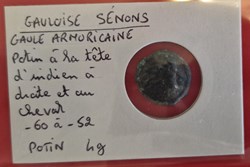 GAULOISE SÉNONS
GAULE ARMORICAINE
Potin à la tête
d'indien à
droite et au
cheval
-60 à -52
POTIN 4g